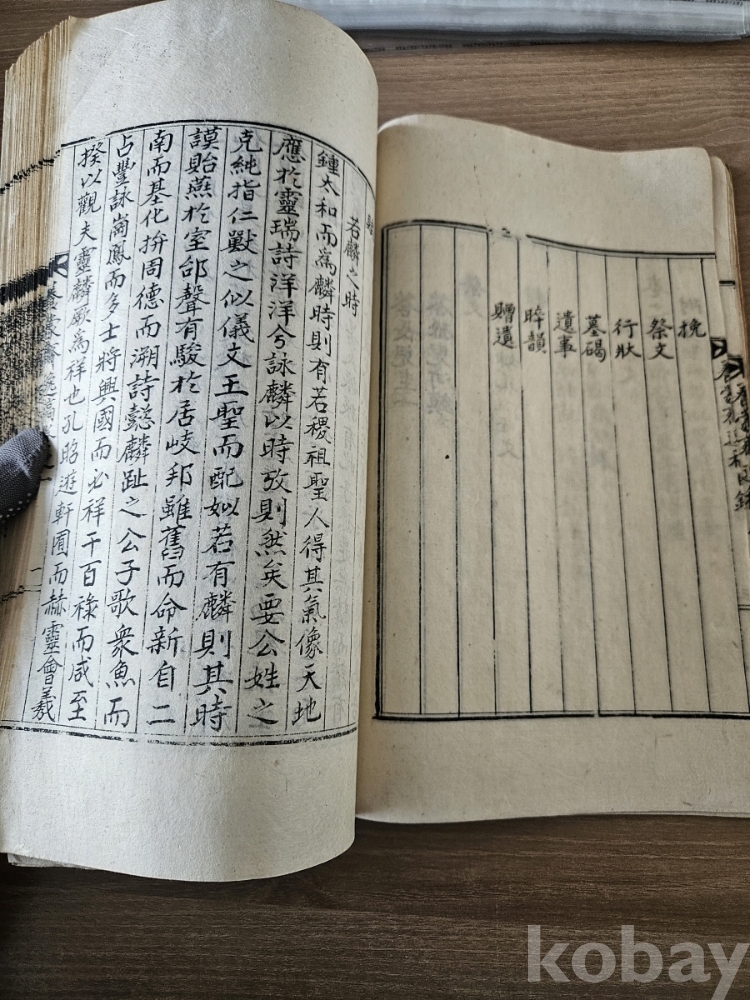 挽
祭文
行狀
墓碣
遺事
晬韻
贈遺
若麟之時
鍾太和而爲麟時則有若稷祖聖人得其氣像天地
應於靈瑞詩洋洋兮詠麟以時攷則然矣要公姓之
克純指仁獸之似儀文王聖而配姒若有麟則其時
謨貽燕於室郃聲有駿於居岐邦雖舊而命新自二
南而基化拚周德而溯詩懿麟趾之公子歌衆魚而
占豐詠崗鳳而多士將興國而必祥干百祿而咸至
揆以觀夫靈麟厥爲祥也孔昭遊軒囿而赫靈會羲
kobay